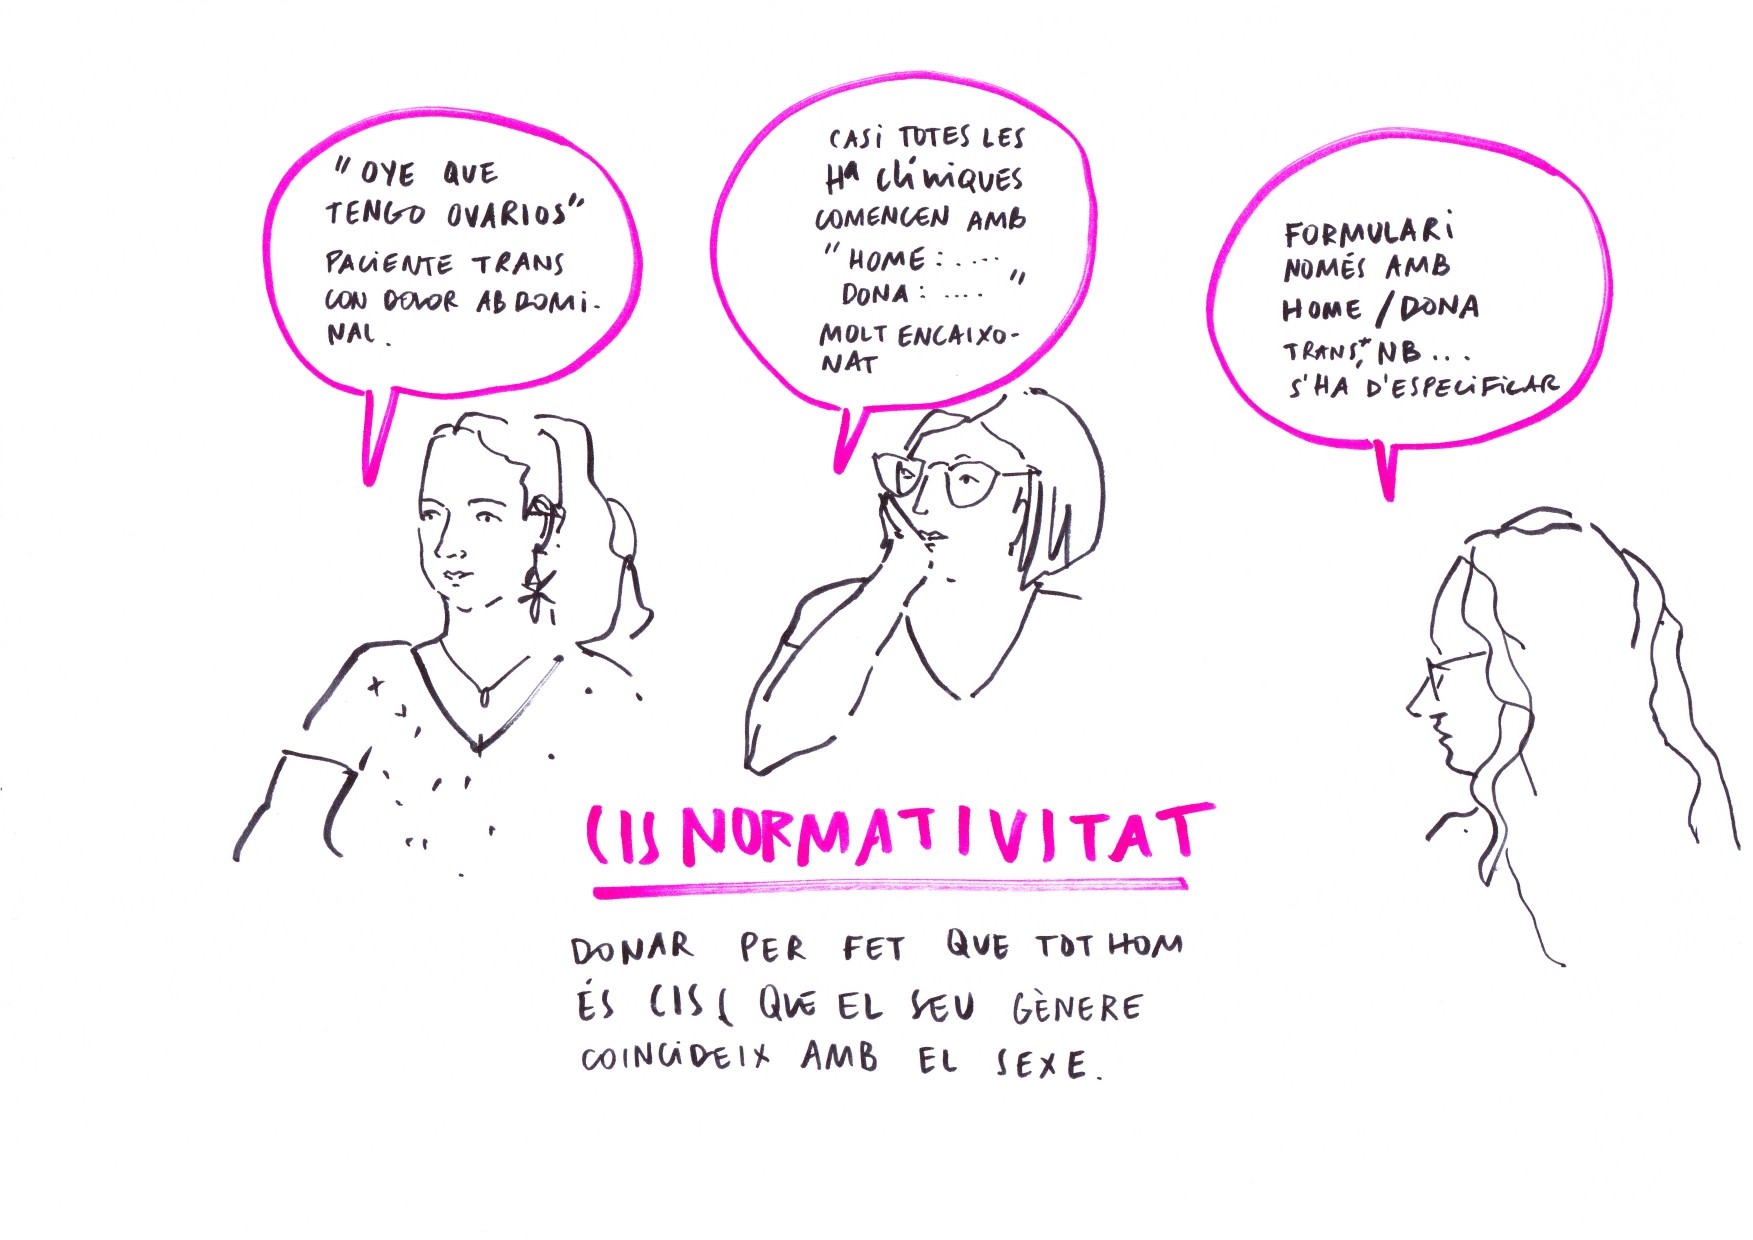 "OYE QUE
TENGO OVARIOS"
PACIENTE TRANS
CON DOLOR ABDOMI-
NAL.
CASI TOTES LES
Hª Clíniques
COMENCEN AMB
"HOME: ....
DONA: .... "
MOLT ENCAIXO-
NAT
FORMULARI
NOMÉS AMB
HOME / DONA
TRANS*, NB ...
S'HA D'ESPECIFICAR
CISNORMATIVITAT
DONAR PER FET QUE TOTHOM
ÉS CIS ( QUE EL SEU GÈNERE
COINCIDEIX AMB EL SEXE.